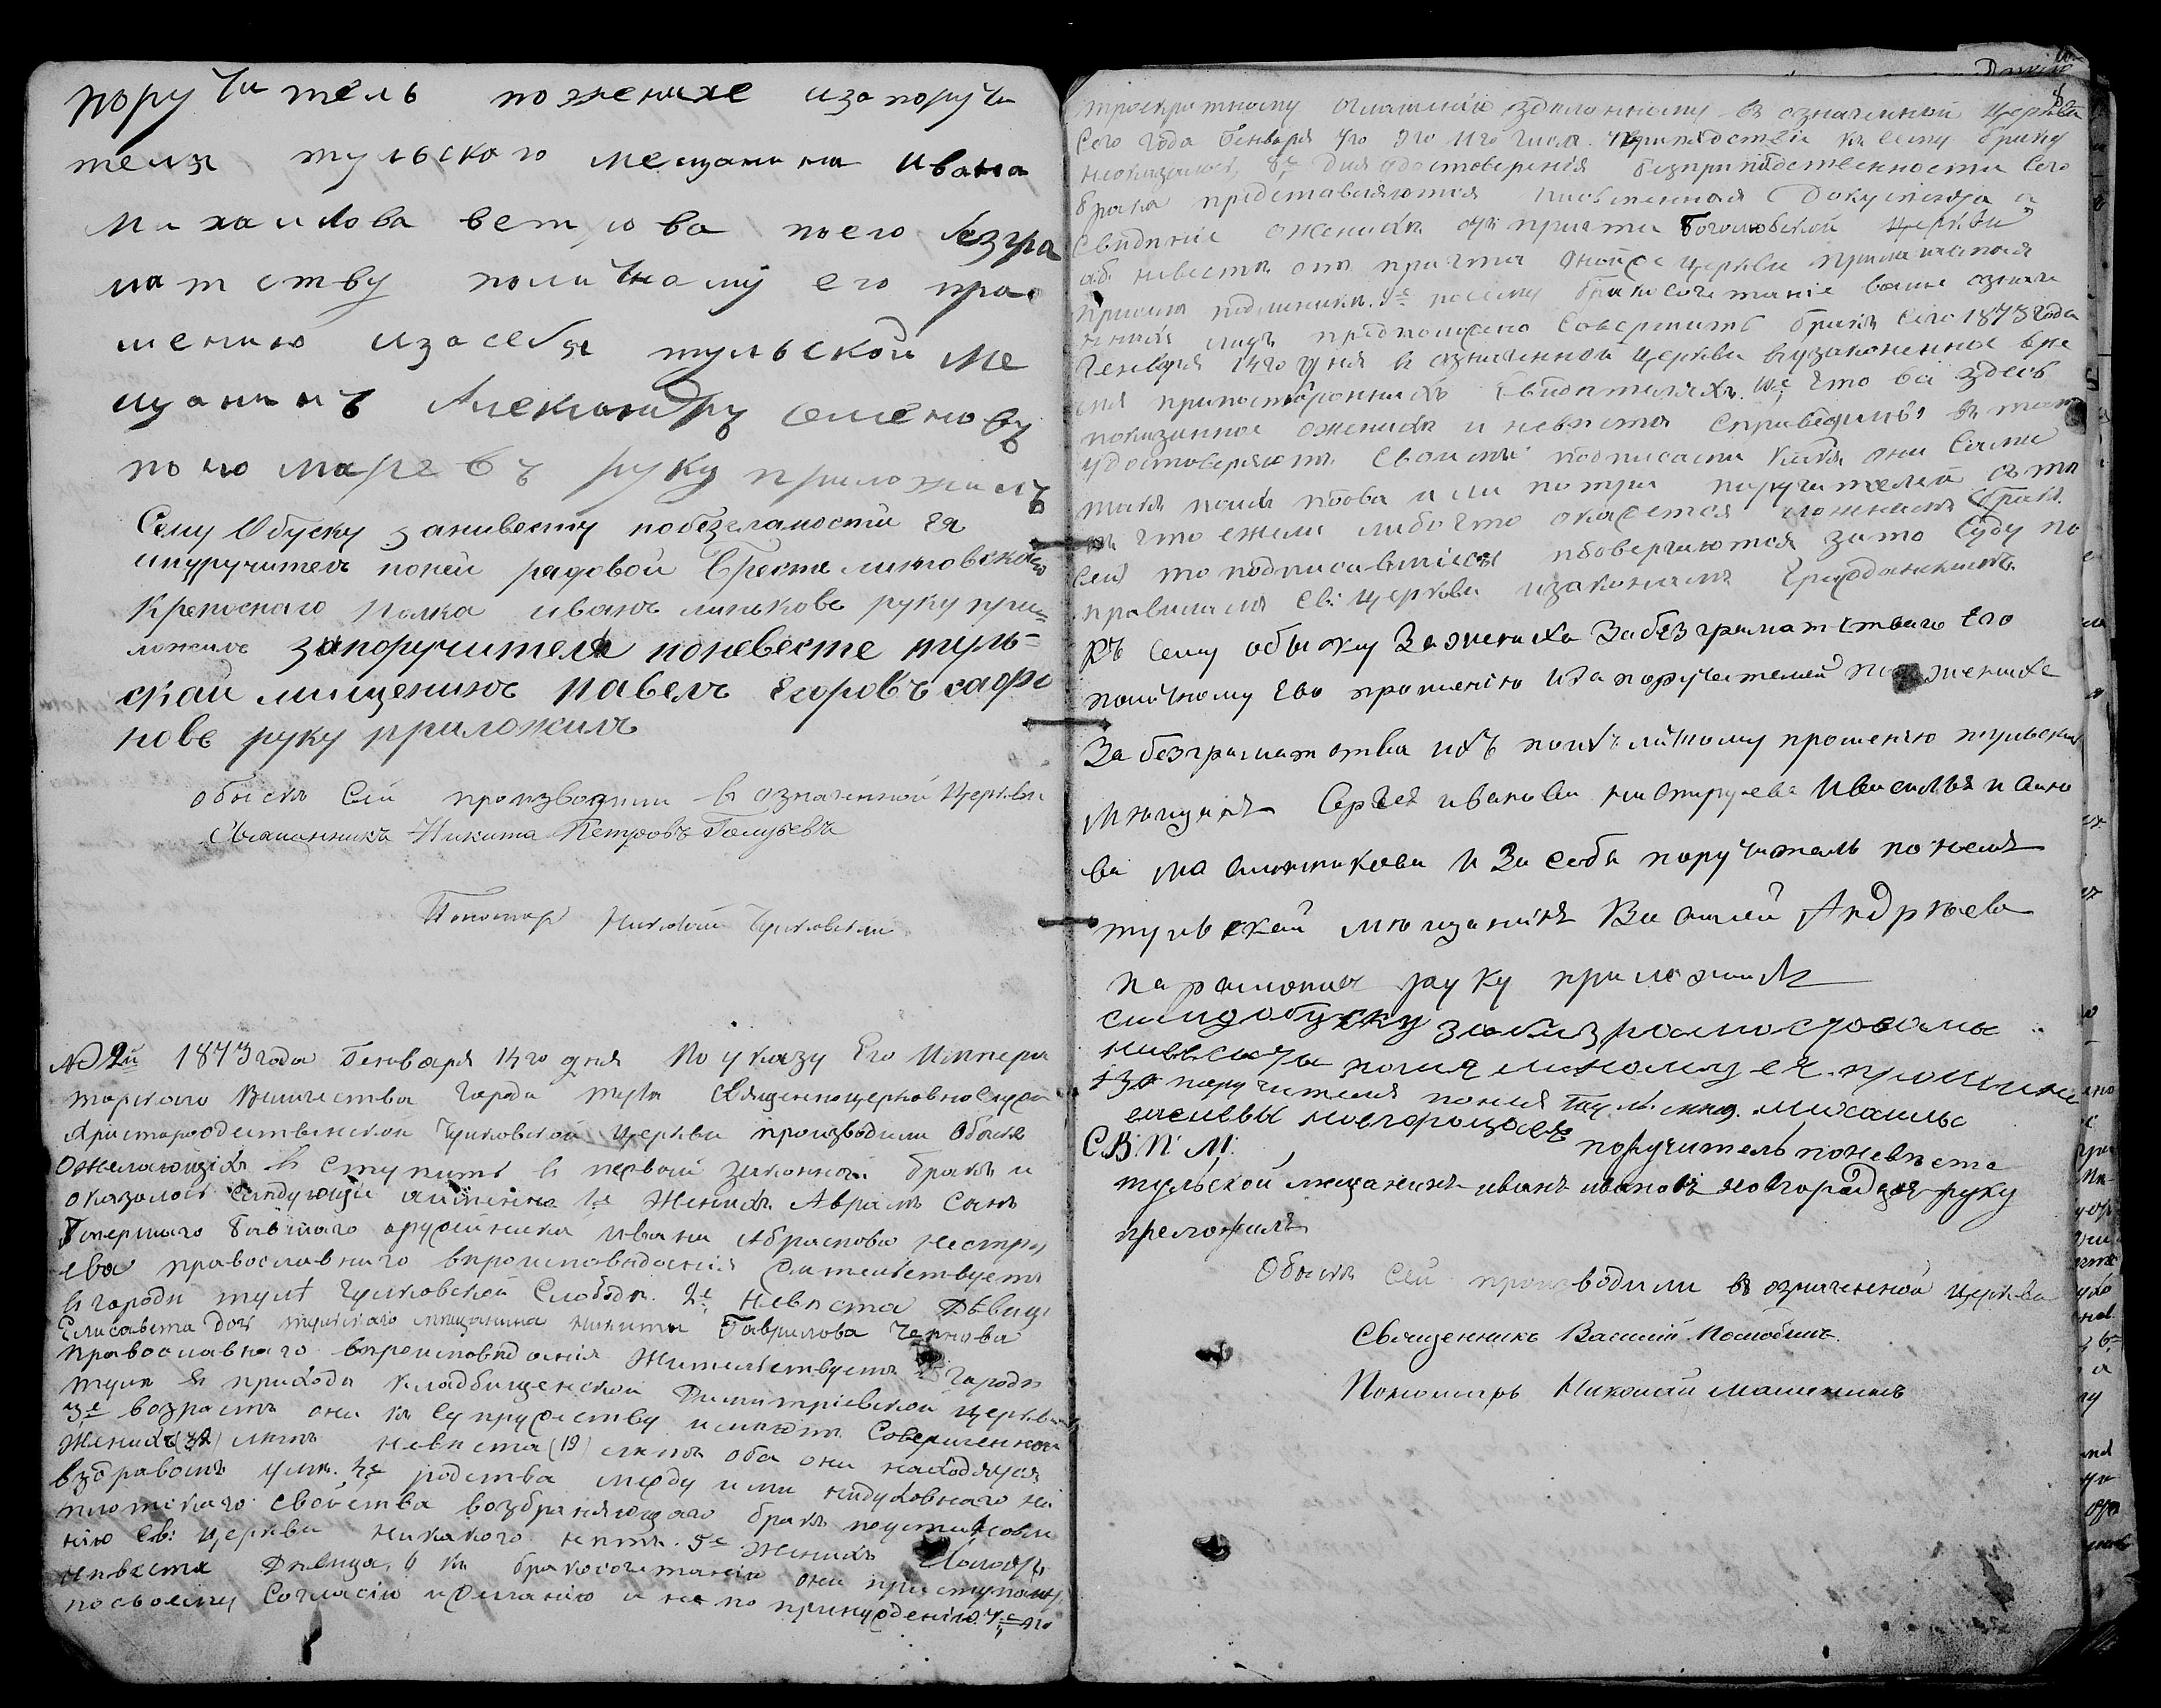 поручитель пожениxе изапоручи
теля тульского мещанина ивана
михаилова ветрова поего безгра
матству поличному его про
шению изасебя тульской ме
щанинъ Александръ семеновъ
пономаревъ руку приложилъ
Сему Обуску заневесту побезграмотсти ея
ипуручитель поней рядовой Брестелитовскаго
Крепоснаго полка иванъ линьковъ руку при=
ложилъ запоручителя поневесте туль=
скай мищенинъ павелъ Егоровъ сафро
новъ руку приложилъ
обыскъ Сей производили въ означенной Церкви
Священникъ Никита Петровъ Голубевъ
Пономарь Николай Чулковский
№ 2й 1873 года Генваря 14го дня По указу Его Импера
торскаго Величества города Тулы Священноцерковнослужи
Христорождественской Чулковской Церкви производили Обыскъ
Ожелающихъ вступить въ первый законной бракъ и
оказалось следующее аимянно 1е Женихъ Аврамъ Сынъ
Умершаго бывшаго оружейника Ивана Абрамова Нестру
ева православнаго вероисповедания Жительствуетъ
въ городе туле Чулковской Слободе. 2е Невеста Девица
Елисавета дочь тульскаго мещанина Никиты Гаврилова Чернова
православнаго вероисповедания Жительствуетъ въ Городе
туле въ приходе кладбищенской Димитриевской церкви
3е возрастъ они къ супружеству имеютъ Совершенной
Женихъ летъ Невеста (19) летъ оба они находятся
вздравомъ уме. 4е родства между ими недуховнаго ни
плотскаго свойства возбраняющаго бракъ поустановле
нию Св: церкви никакого нетъ. 5е Женихъ Холостъ
невеста Девица. 6 къ бракосочетанию они приступаютъ
посвоему Согласию ижеланию и не по принуждению. 7е по
троекратному оглашению зделанному въ означенной Церкви
Сего года Генваря 7го 9го 11го числа. препядствие къ сему браку
неоказалось, 8е Для удостоверения безпрепядственности Сего
брака представляются письменныя Документы а
Сведение ожених отъ причта Богословской Церкви
аб невесте отъ причта оной Церкви прилагается
при семъ подлинникъ. 9е посему бракосочетание выше означе
нныхъ лицъ предположено Совершить бракъ сего 1873 года
Генваря 14го дня в означенной Церкви вузаконенное вре
мя припосторонныхъ Свидетеляхъ. 10е Что всё здесь
показанное ожених и невесте Справедливо въ томъ
удостоверяютъ Своими подписами какъ они Сами
такъ пои потри поручителей съ темъ
что ежели либо что окажется
Сей то подписавшиеся подвергаются зато Суду по
правиламъ Св: Церкви изаконамъ Гражданскимъ.
Къ сему обыску Зажениха Забезграматствомъ Его
поличному Ево прошению Иза поручителей по жениху
За безграматства ихъ поихъ личному прошению тульский
Мещанинъ Сергея иванова Ниструева Ивасилья ивано
ва масленникова И За себя поручитель понемъ
тульскай мещанинъ Василий Андреевъ
парамонов руку приложилъ
симу обуску
невесты поличному ея прошению
иза поручителя понея Тул. мещ. михаила
семенова новгородцова
С.В.П.М: поручитель поневесте
тульской мещанинъ иванъ ивановъ новгородцовъ руку
преложилъ
Обыскъ Сей производили въ означенной церкви
Священникъ Василий Пособинъ
Пономарь Николай машенинъ